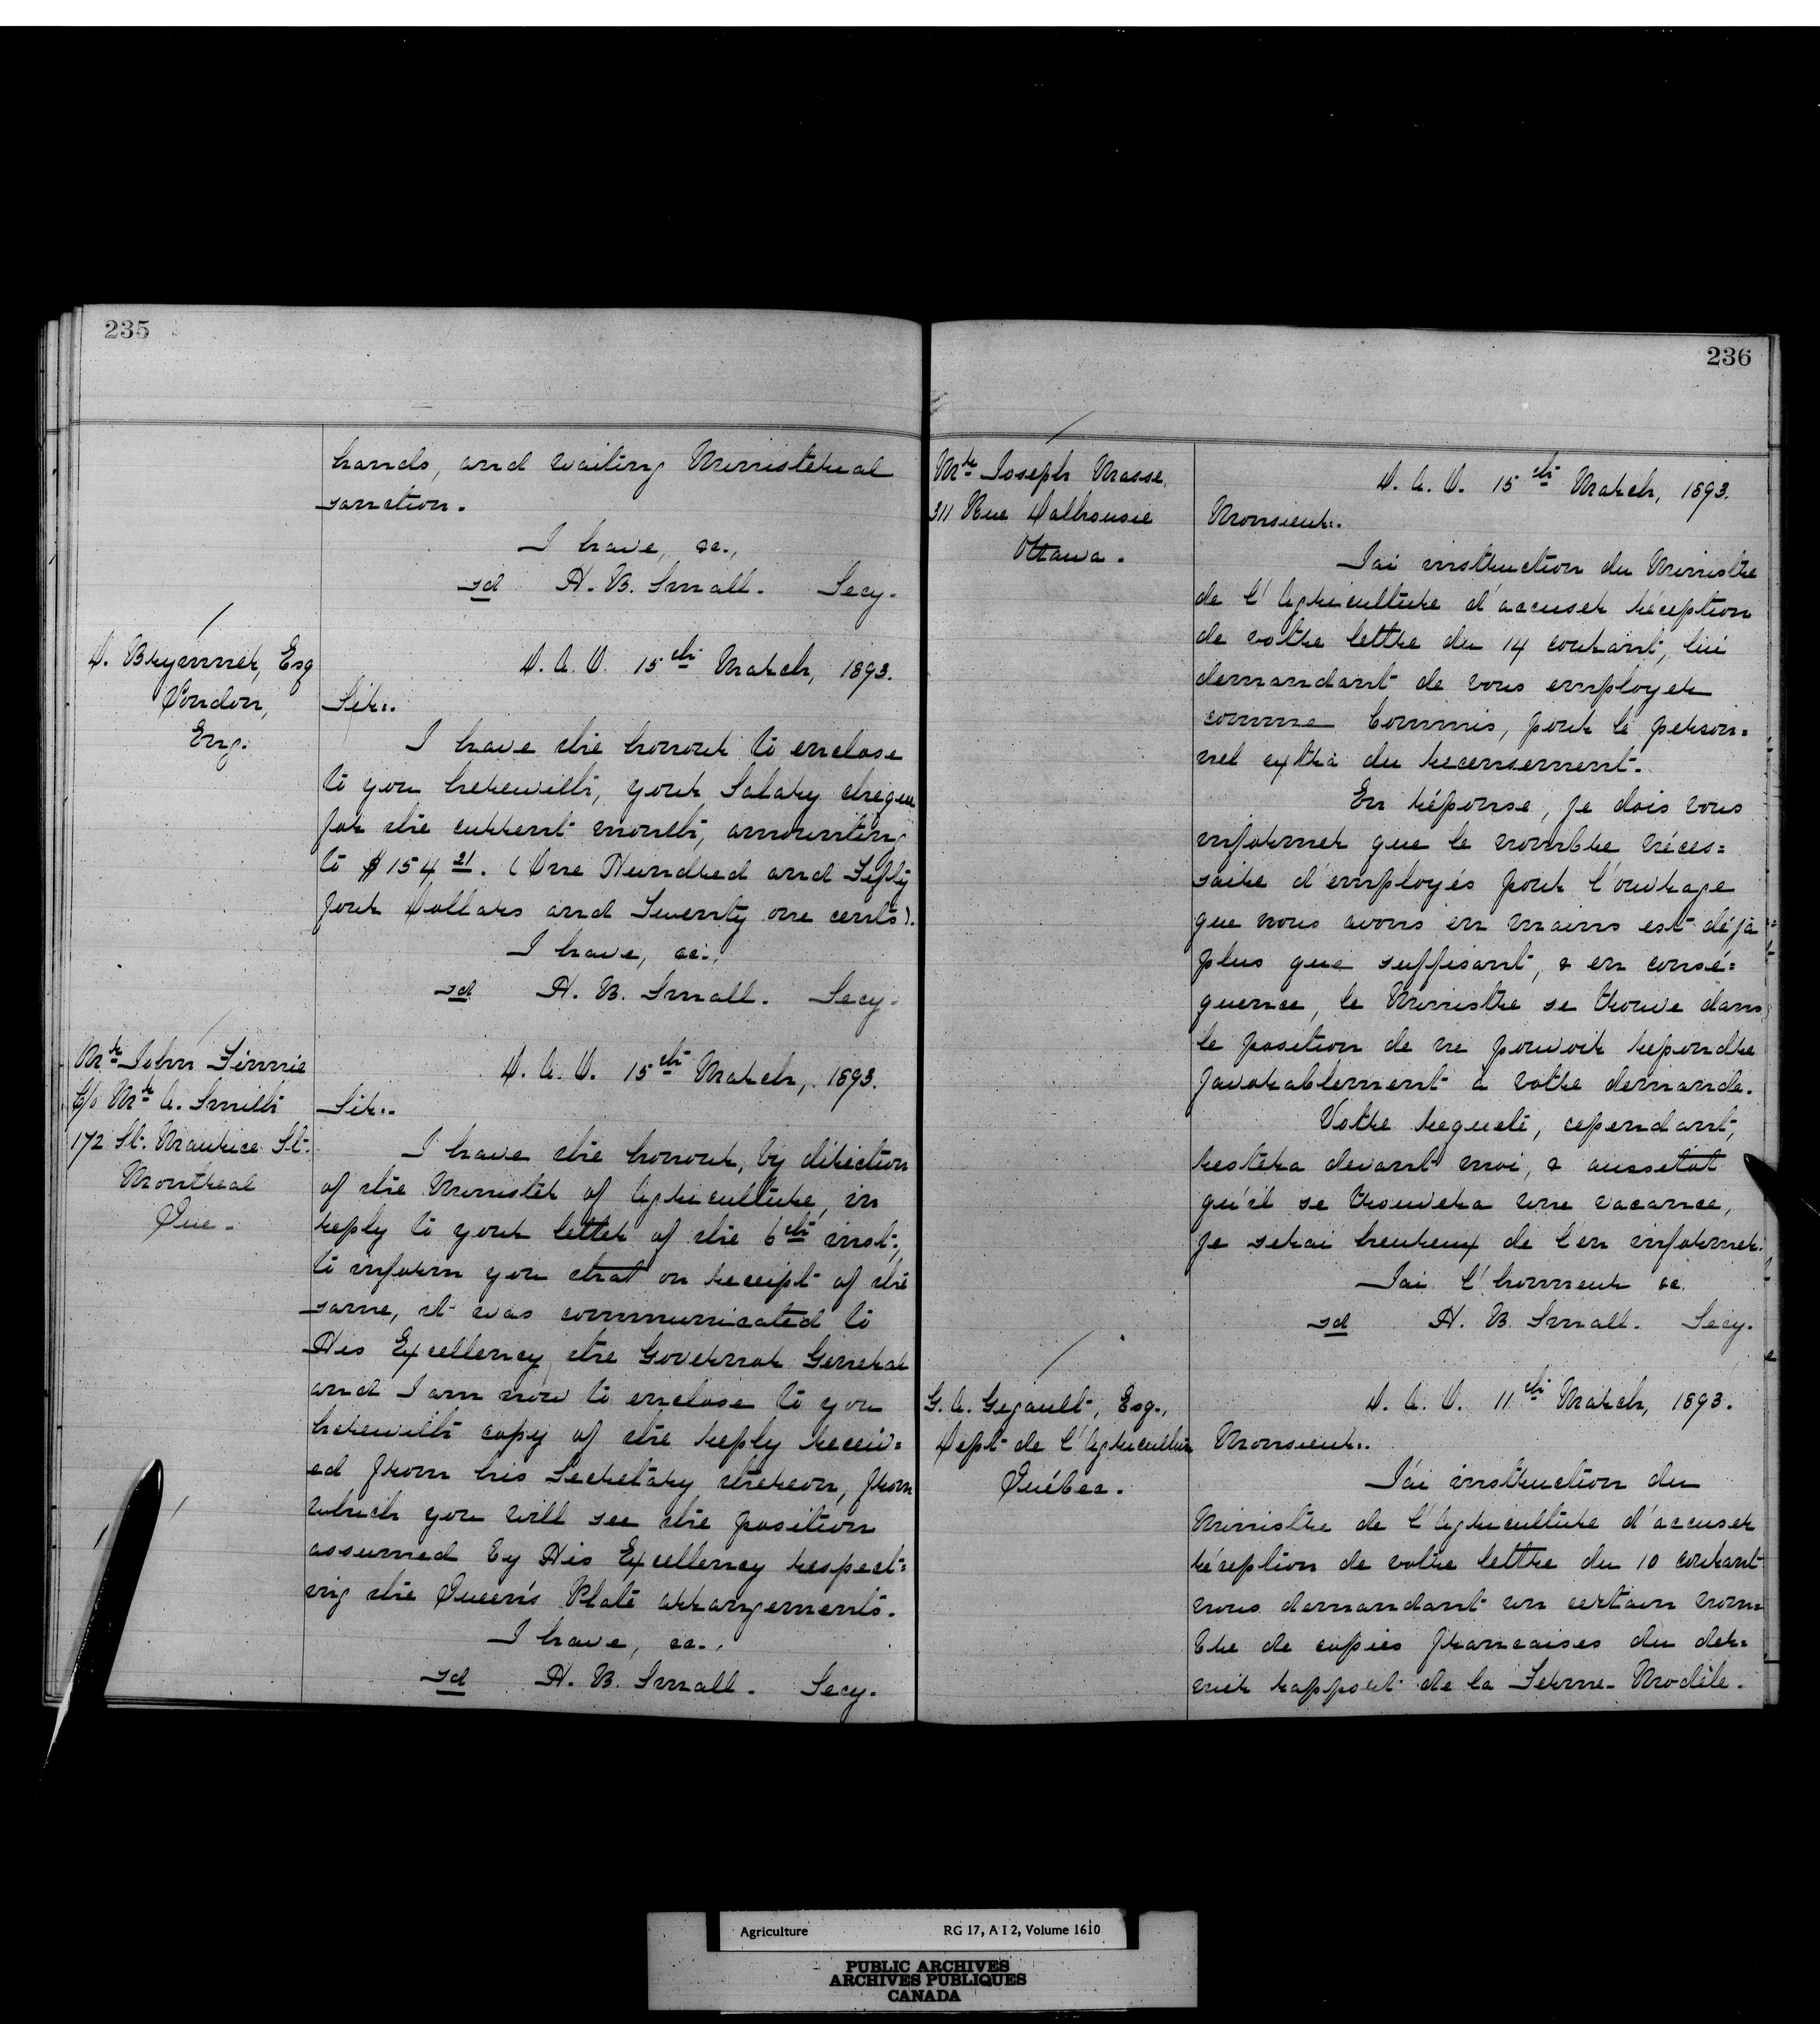 235
hands, and waiting Ministerial
sanction.
I have, &c.,
sd H. B. Small. Secy.
D. Brymner, Esq
London,
Eng.
D. A. O. 15th March, 1893.
Sir:.
I have the honour to enclose
to you herewith, your Salary cheque
for the current month, amounting
to $154 21. (One Hundred and Fifty
four Dollars and Seventy one cents).
I have, &c.,
sd H. B. Small. Secy.
Mr John Finnie
C/o Mr A. Smith
172 St. Maurice St.
Montreal
Que.
D. A. O. 15th March, 1893.
Sir:.
I have the honour, by direction
of the Minister of Agriculture, in
reply to your letter of the 6th inst.,
to inform you that on receipt of the
same, it was communicated to
His Excellency the Governor General
and I am now to enclose to you
herewith copy of the reply receiv=
ed from his Secretary thereon, from
which you will see the position
assumed by His Excellency respect=
ing the Queen's Plate arrangements.
I have, &c.,
sd H. B. Small. Secy.
236
Mr Joseph Masse,
311 Rue Dalhousie
Ottawa.
D. A. O. 15th March, 1893.
Monsieur:.
J'ai instruction du Ministre
de l'Agriculture d'accuser réception
de votre lettre du 14 courant, lui
demandant de vous employer
comme Commis, pour le person=
nel extra du recensement.
En réponse, je dois vous
informer que le nombre néces=
saire d'employés pour l'ouvrage
que nous avons en mains est déjà
plus que suffisant, & en consé=
quence, le Ministre se trouve dans
le position de ne pouvoir repondre
favorablement à votre demande.
Votre requete, cependant,
restera devant moi, & aussitot
qu'il se trouvera une vacance,
je serai heureux de l'en informer.
J'ai l'honneur &c.
sd H. B. Small. Secy.
G. A. Gigault, Esq.,
Dept de l'Agriculture
Québec.
D. A. O. 11th March, 1893.
Monsieur:.
J'ai instruction du
Ministre de l'Agriculture d'accuser
réception de votre lettre du 10 courant
nous demandant un certain nom=
bre de copies francaises du der=
nier rapport de la Ferme-Modèle.
Agriculture RG 17, A I 2, Volume 1610
PUBLIC ARCHIVES
ARCHIVES PUBLIQUES
CANADA